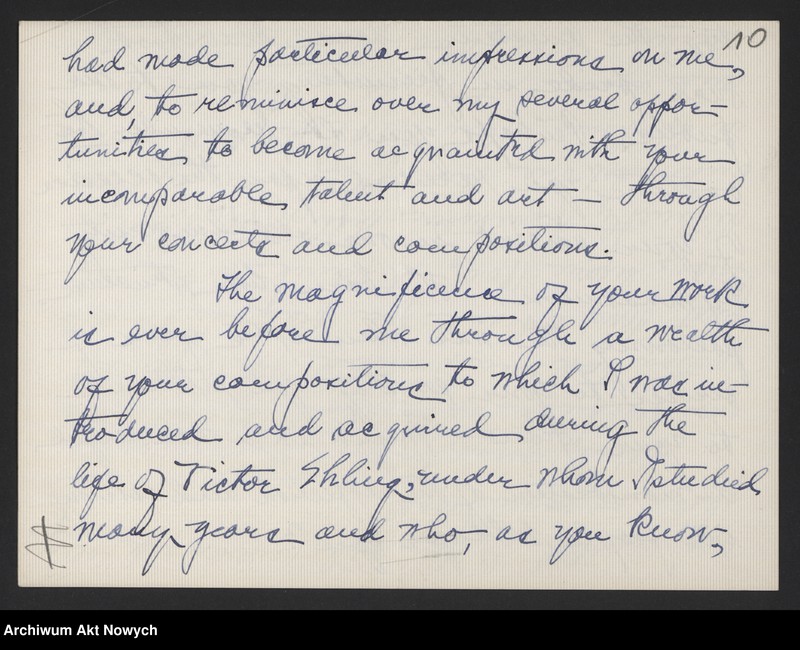 10
had made particular impressions on me,
and, to reminisce over my several oppor-
tunities to become acquainted with your
incomparable talent and art — through
your concerts and compositions.
The magnificence of your work
is ever before me through a wealth
of your compositions to which I was in-
troduced and acquired during the
life of Victor Ehling, under whom I studied
many years and who, as you know,
Archiwum Akt Nowych